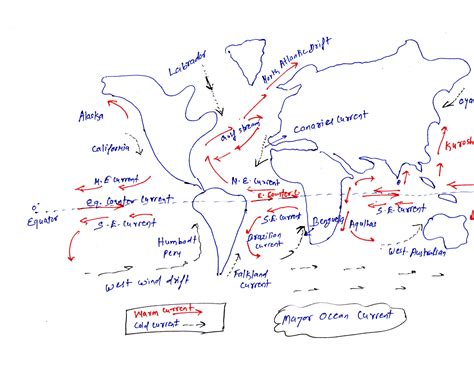 Labrador
North Atlantic Drift
Alaska
Gulf stream
Oya
California
Canaries Current
Kurosh
N.E Current
N.E. Current
eq. Counter Current
E. Counter C
0°
Equator
S.E. Current
S.E. Current
S.E. Current
Brazilian
Current
Benguela
Agulhas
Humbodt
Peru
West Australian
West Wind drift
Falkland
Current
Warm Current
Cold Current
Major Ocean Current